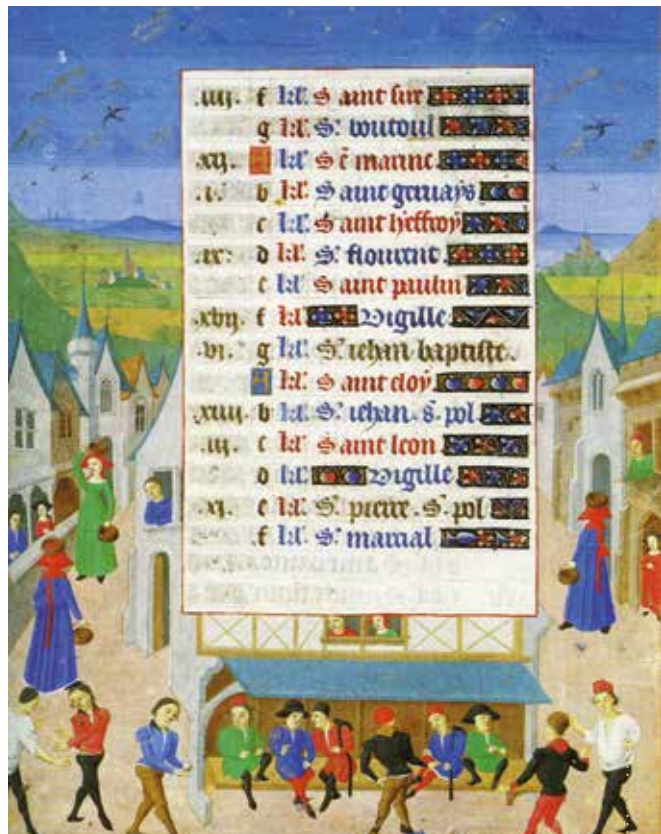 .iiij. f kl'. Saint sur
g kl'. S'. boutoul
.xij. A kl'. S'e marine
.i. b kl'. Saint geruays
c kl'. Saint heffroy
.ix. d kl'. S'. flourent.
e kl'. Saint paulin
.xvij. f kl'. Vigille.
.vi. g kl'. S'. iehan baptiste.
A kl'. Saint eloy.
.xiiij. b kl'. S'. iehan. s'. pol
.iij. c kl'. Saint leon
d kl'. Vigille
.xi. e kl'. S'. pierre. s'. pol
.f kl'. S'. marcial